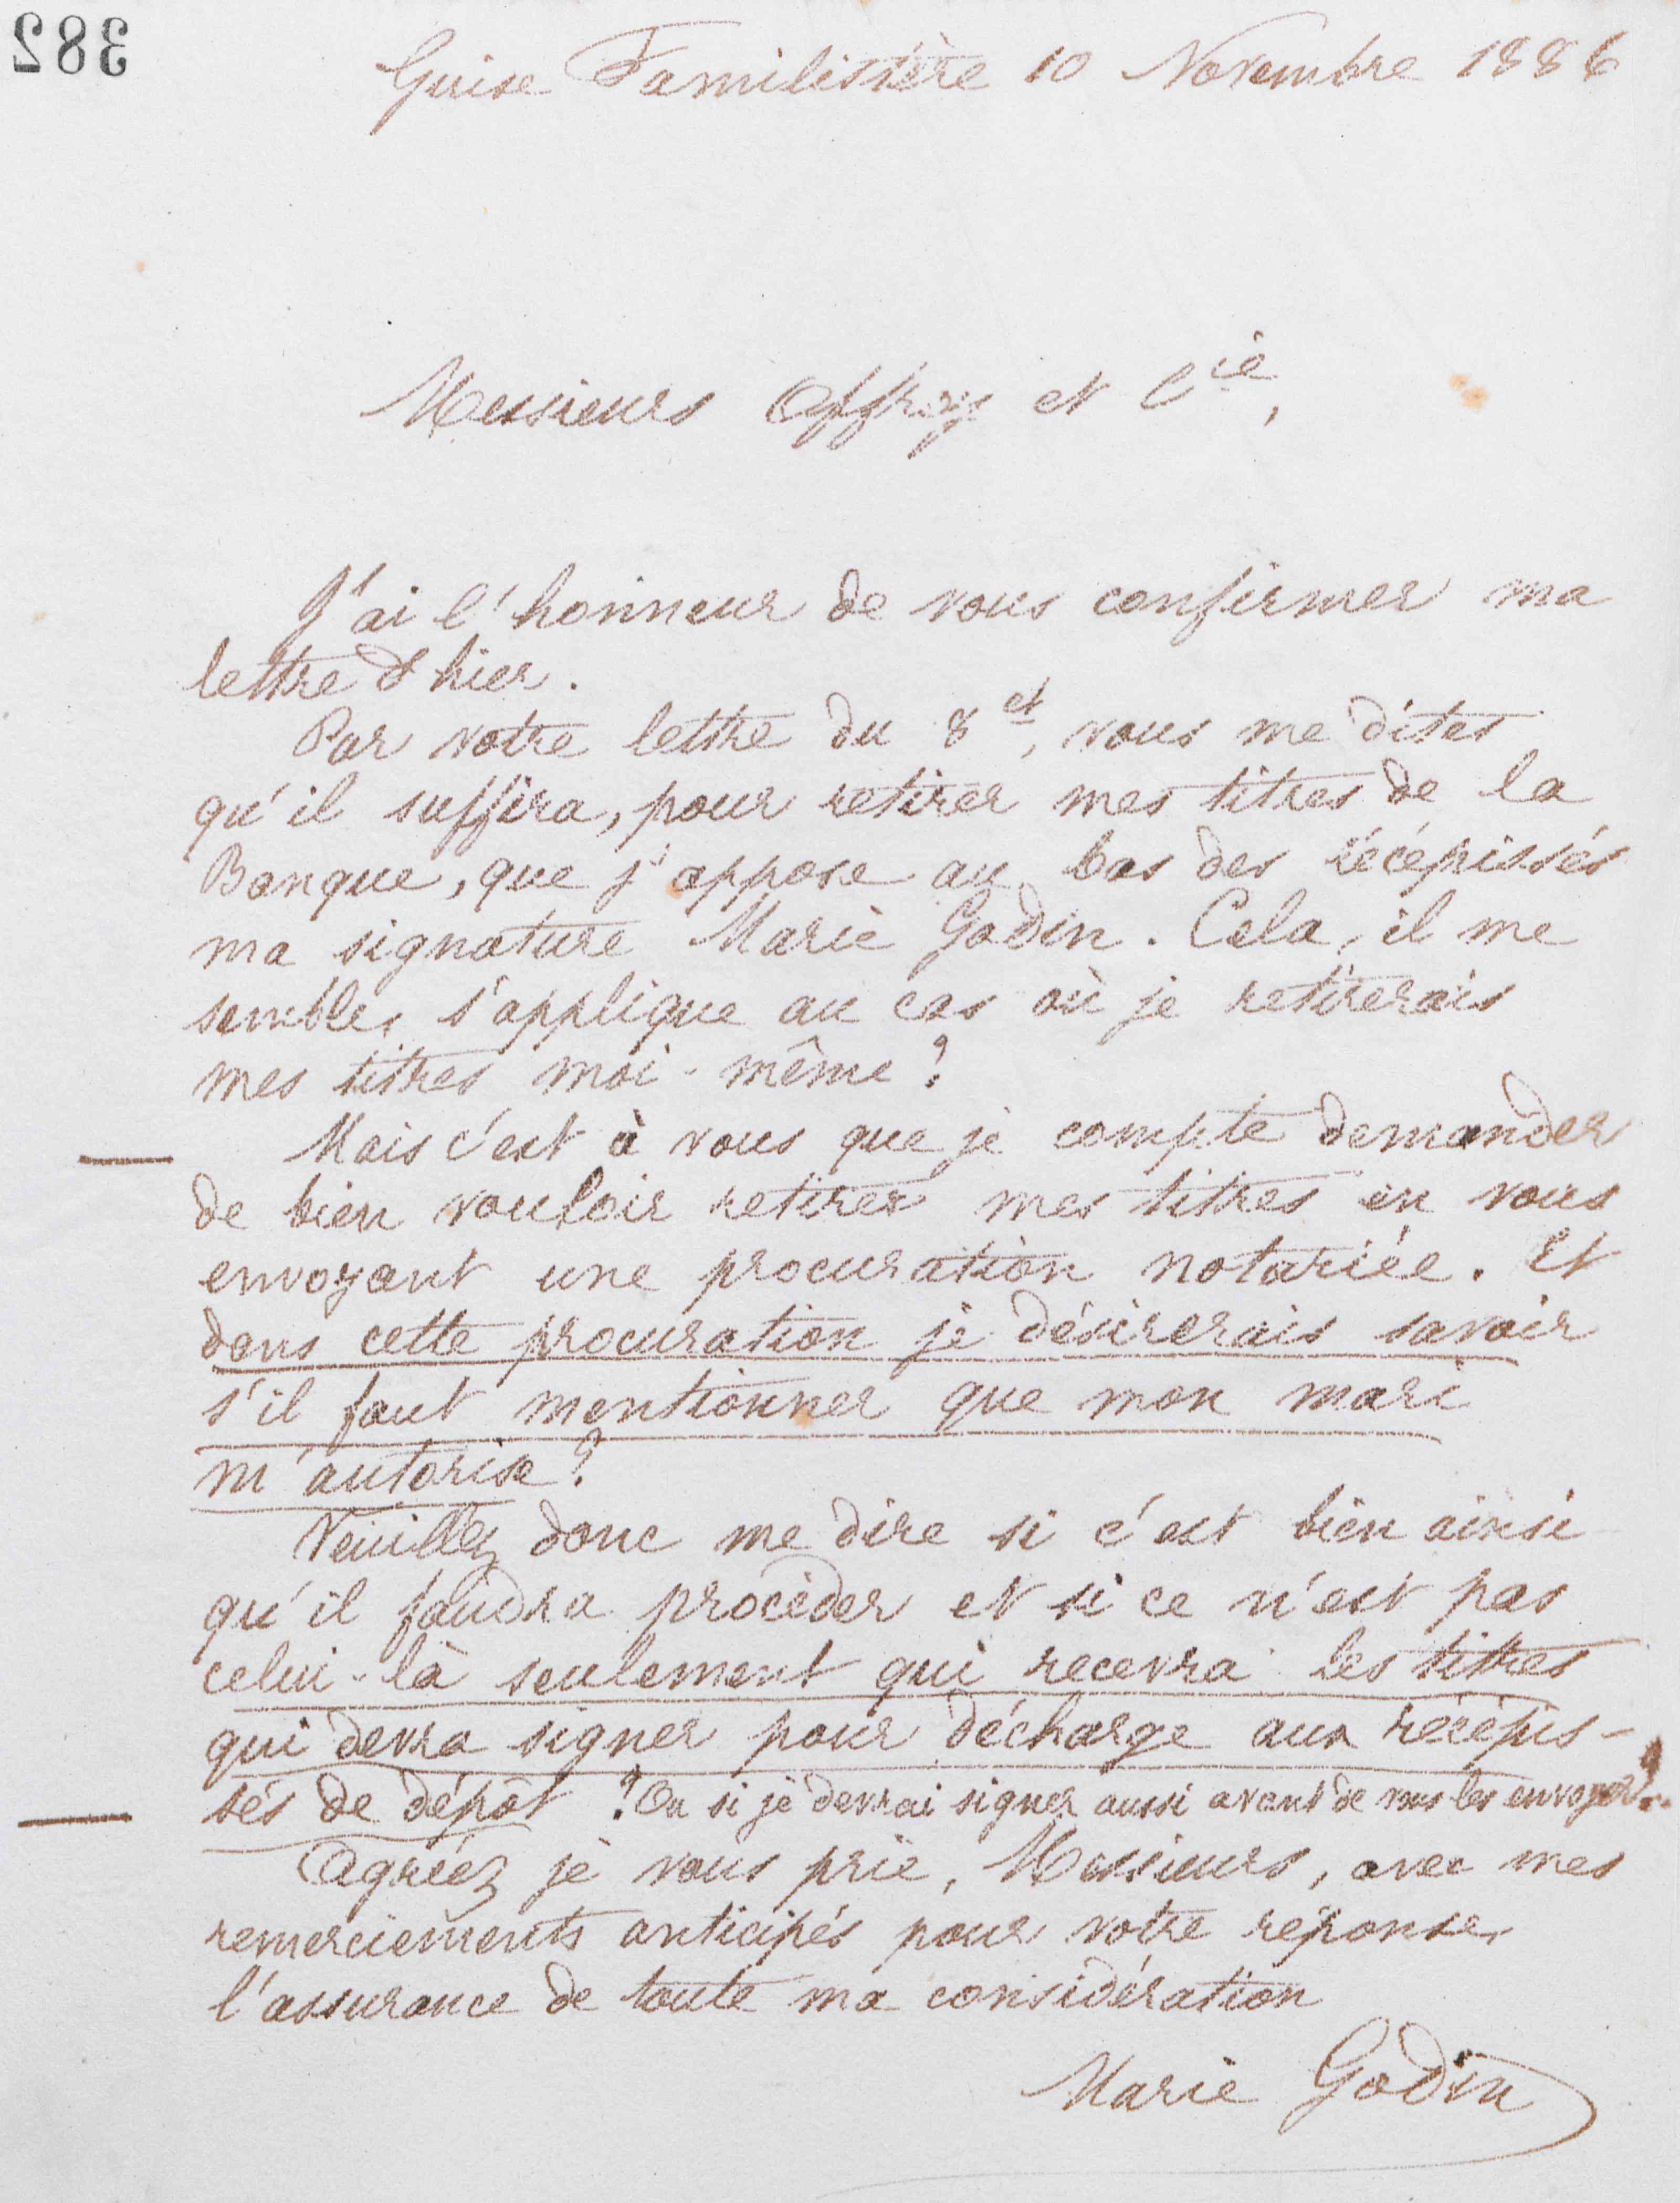 382
Guise Familistère 10 Novembre 1886
Messieurs et Cie,
J'ai l'honneur de vous confirmer ma
lettre d'hier.
Par votre lettre du 8 ct, vous me dites
qu'il suffira, pour retirer mes titres de la
Banque, que j'appose au bas des récépissés
ma signature Marie Godin. Cela, il me
semble, s'applique au cas où je retirerais
mes titres moi-même ?
Mais c'est à vous que je compte demander
de bien vouloir retirer mes titres en vous
envoyant une procuration notariée. Et
dans cette procuration je désirerais savoir
s'il faut mentionner que mon mari
m'autorise ?
Veuillez donc me dire si c'est bien ainsi
qu'il faudra procéder et si ce n'est pas
celui-là seulement qui recevra les titres
qui devra signer pour décharge aux récépis-
sés de dépôt ? Ou si je devrai signer aussi avant de vous les envoyer ?
Agréez je vous prie, Messieurs, avec mes
remerciements anticipés pour votre réponse,
l'assurance de toute ma considération
Marie Godin